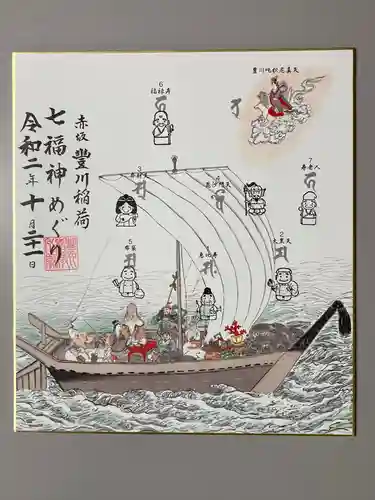 赤坂 豊川稲荷
七福神めぐり
令和二年十月二十一日
豊川吒枳尼眞天
6
福禄寿
7
寿老人
3
弁財天
4
毘沙門天
5
布袋
1
恵比寿
2
大黒天